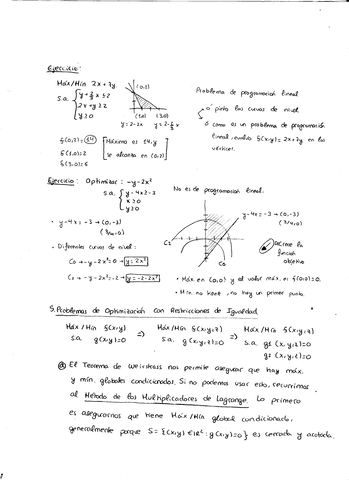 Ejercicio:
Máx/Mín 2x+7y
s.a. { y + 2/3 x ≤ 2
2x + y ≥ 2
y ≥ 0
(0,2)
(1,0) (3,0)
y = 2-2x y = 2-2/3 x
Problema de programación lineal
ó pinto las curvas de nivel
ó como es un problema de programación
lineal, evalúo f(x,y) = 2x+7y en los
vértices.
f(0,2) = 14
f(1,0) = 2
f(3,0) = 6
Máximo es 14, y
se alcanza en (0,2)
Ejercicio: Optimizar: -y-2x²
s.a. { y-4x ≥ -3
x ≥ 0
y ≥ 0
No es de programación lineal.
· y-4x = -3 → (0,-3)
(3/4,0)
· Diferentes curvas de nivel:
C0 → -y-2x² = 0 → y = -2x²
-y-2x² = 2 → y = -2-2x²
y-4x = -3 → (0,-3)
(3/4,0)
C2
C0
función
objetivo
· Máx en (0,0) y el valor máx. es f(0,0)=0.
· Mín no tiene, no hay un primer punto.
5. Problemas de Optimización con Restricciones de Igualdad.
Máx/Mín f(x,y) ⇒ Máx/Mín f(x,y,z) ⇒ Máx/Mín f(x,y,z)
s.a. g(x,y)=0 s.a. g(x,y,z)=0 s.a. g1(x,y,z)=0
g2(x,y,z)=0
El Teorema de Weirstrass nos permite asegurar que hay máx.
y mín. globales condicionados. Si no podemos usar esto, recurrimos
al Método de los Multiplicadores de Lagrange. Lo primero
es asegurarnos que tiene Máx/Mín global condicionado,
generalmente porque S = {(x,y) ∈ ℝ² : g(x,y)=0} es cerrado y acotado.